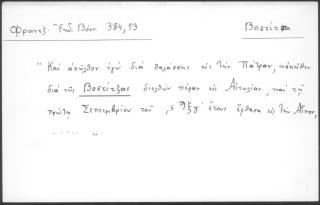 Φραντζ. Ἔκδ. Βόνν. 384,13 Βοστίτσα
"Καὶ ἀπῆλθον ἐγὼ διὰ θαλάσσης εἰς τὴν Πάτραν, κἀκεῖθεν
διὰ τῆς Βοστίτζας διελθὼν πέραν εἰς Αἰτωλίαν, καὶ τῇ
πρώτῃ Σεπτεμβρίου τοῦ ἔτους ἔφθασα εἰς τὴν Αἶνον,
..... "